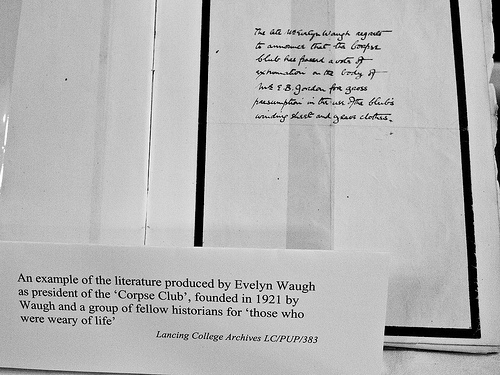 The late Mr Evelyn Waugh regrets
to announce that the Corpse
Club has passed a vote of
exhumation on the body of
Mr E.B. Gordon for gross
presumption in the use of the Club's
winding sheet and grave clothes.
An example of the literature produced by Evelyn Waugh
as president of the ‘Corpse Club’, founded in 1921 by
Waugh and a group of fellow historians for ‘those who
were weary of life’
Lancing College Archives LC/PUP/383